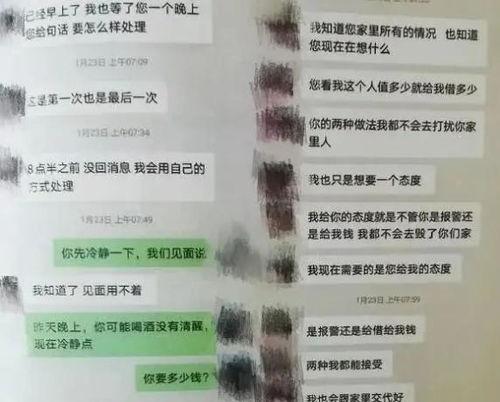 已经早上了 我也等了您一个晚上
您给句话 要怎么样处理
1月23日 上午07:09
这是第一次也是最后一次
1月23日 上午07:34
8点半之前 没回消息 我会用自己的
方式处理
1月23日 上午07:49
你先冷静一下，我们见面说
我知道了 见面用不着
昨天晚上，你可能喝酒没有清醒，
现在冷静点
你要多少钱？
我知道您家里所有的情况 也知道
您现在在想什么
您看我这个人值多少就给我借多少
你的两种做法我都不会去打扰你家
里人
我也只是想要一个态度
我给你的态度就是不管你是报警还
是给我钱 我都不会去毁了你们家
我现在需要的是您给我的态度
1月23日 上午07:59
是报警还是给借给我钱
两种我都能接受
我也会跟家里交代好